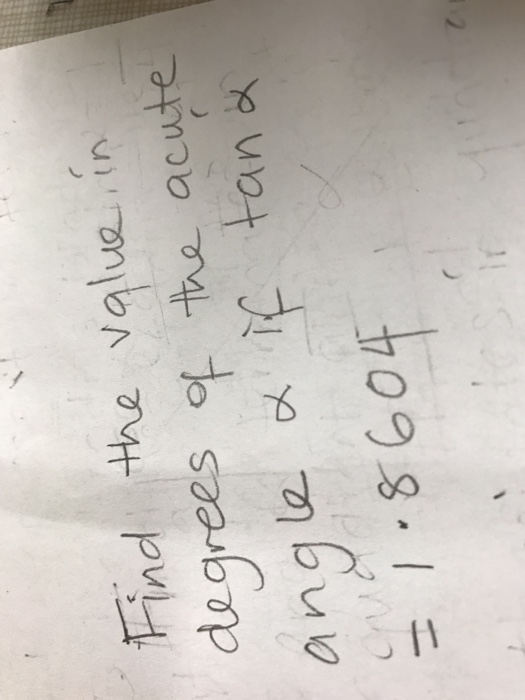 Find the value in
degrees of the acute
angle α if tan α
= 1.8604